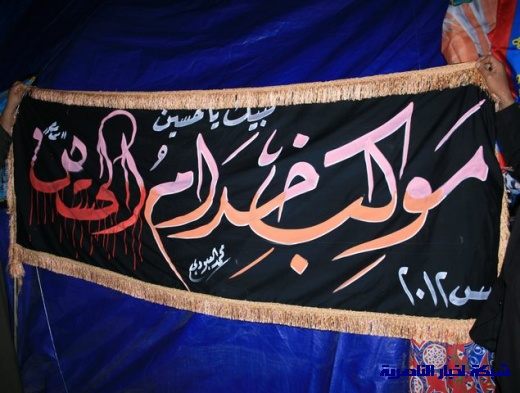 لبيك يا حسين
موكب خدام الحسين
س ٢٠١٢
شبكة اخبار الناصرية